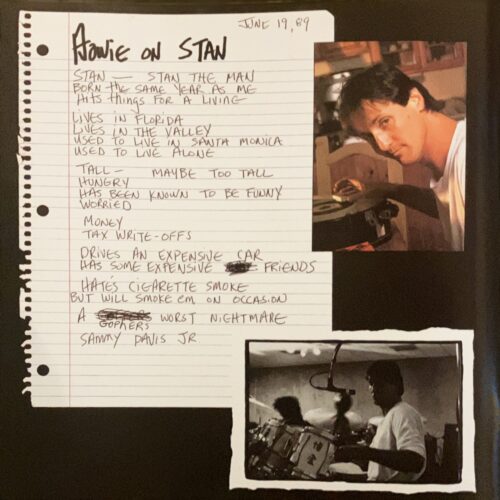 JUNE 19, 89
Howie ON STAN
STAN — STAN THE MAN
BORN THE SAME YEAR AS ME
HITS THINGS FOR A LIVING
LIVES IN FLORIDA
LIVES IN THE VALLEY
USED TO LIVE IN SANTA MONICA
USED TO LIVE ALONE
TALL — MAYBE TOO TALL
HUNGRY
HAS BEEN KNOWN TO BE FUNNY
WORRIED
MONEY
TAX WRITE-OFFS
DRIVES AN EXPENSIVE CAR
HAS SOME EXPENSIVE FRIENDS
HATES CIGARETTE SMOKE
BUT WILL SMOKE EM ON OCCASION
A GOPHERS WORST NIGHTMARE
SAMMY DAVIS JR